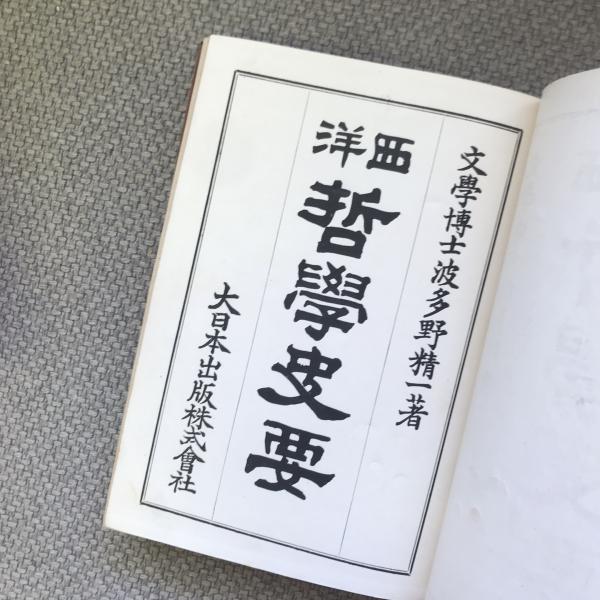 文學博士波多野精一著
西洋
哲學史要
大日本出版株式會社